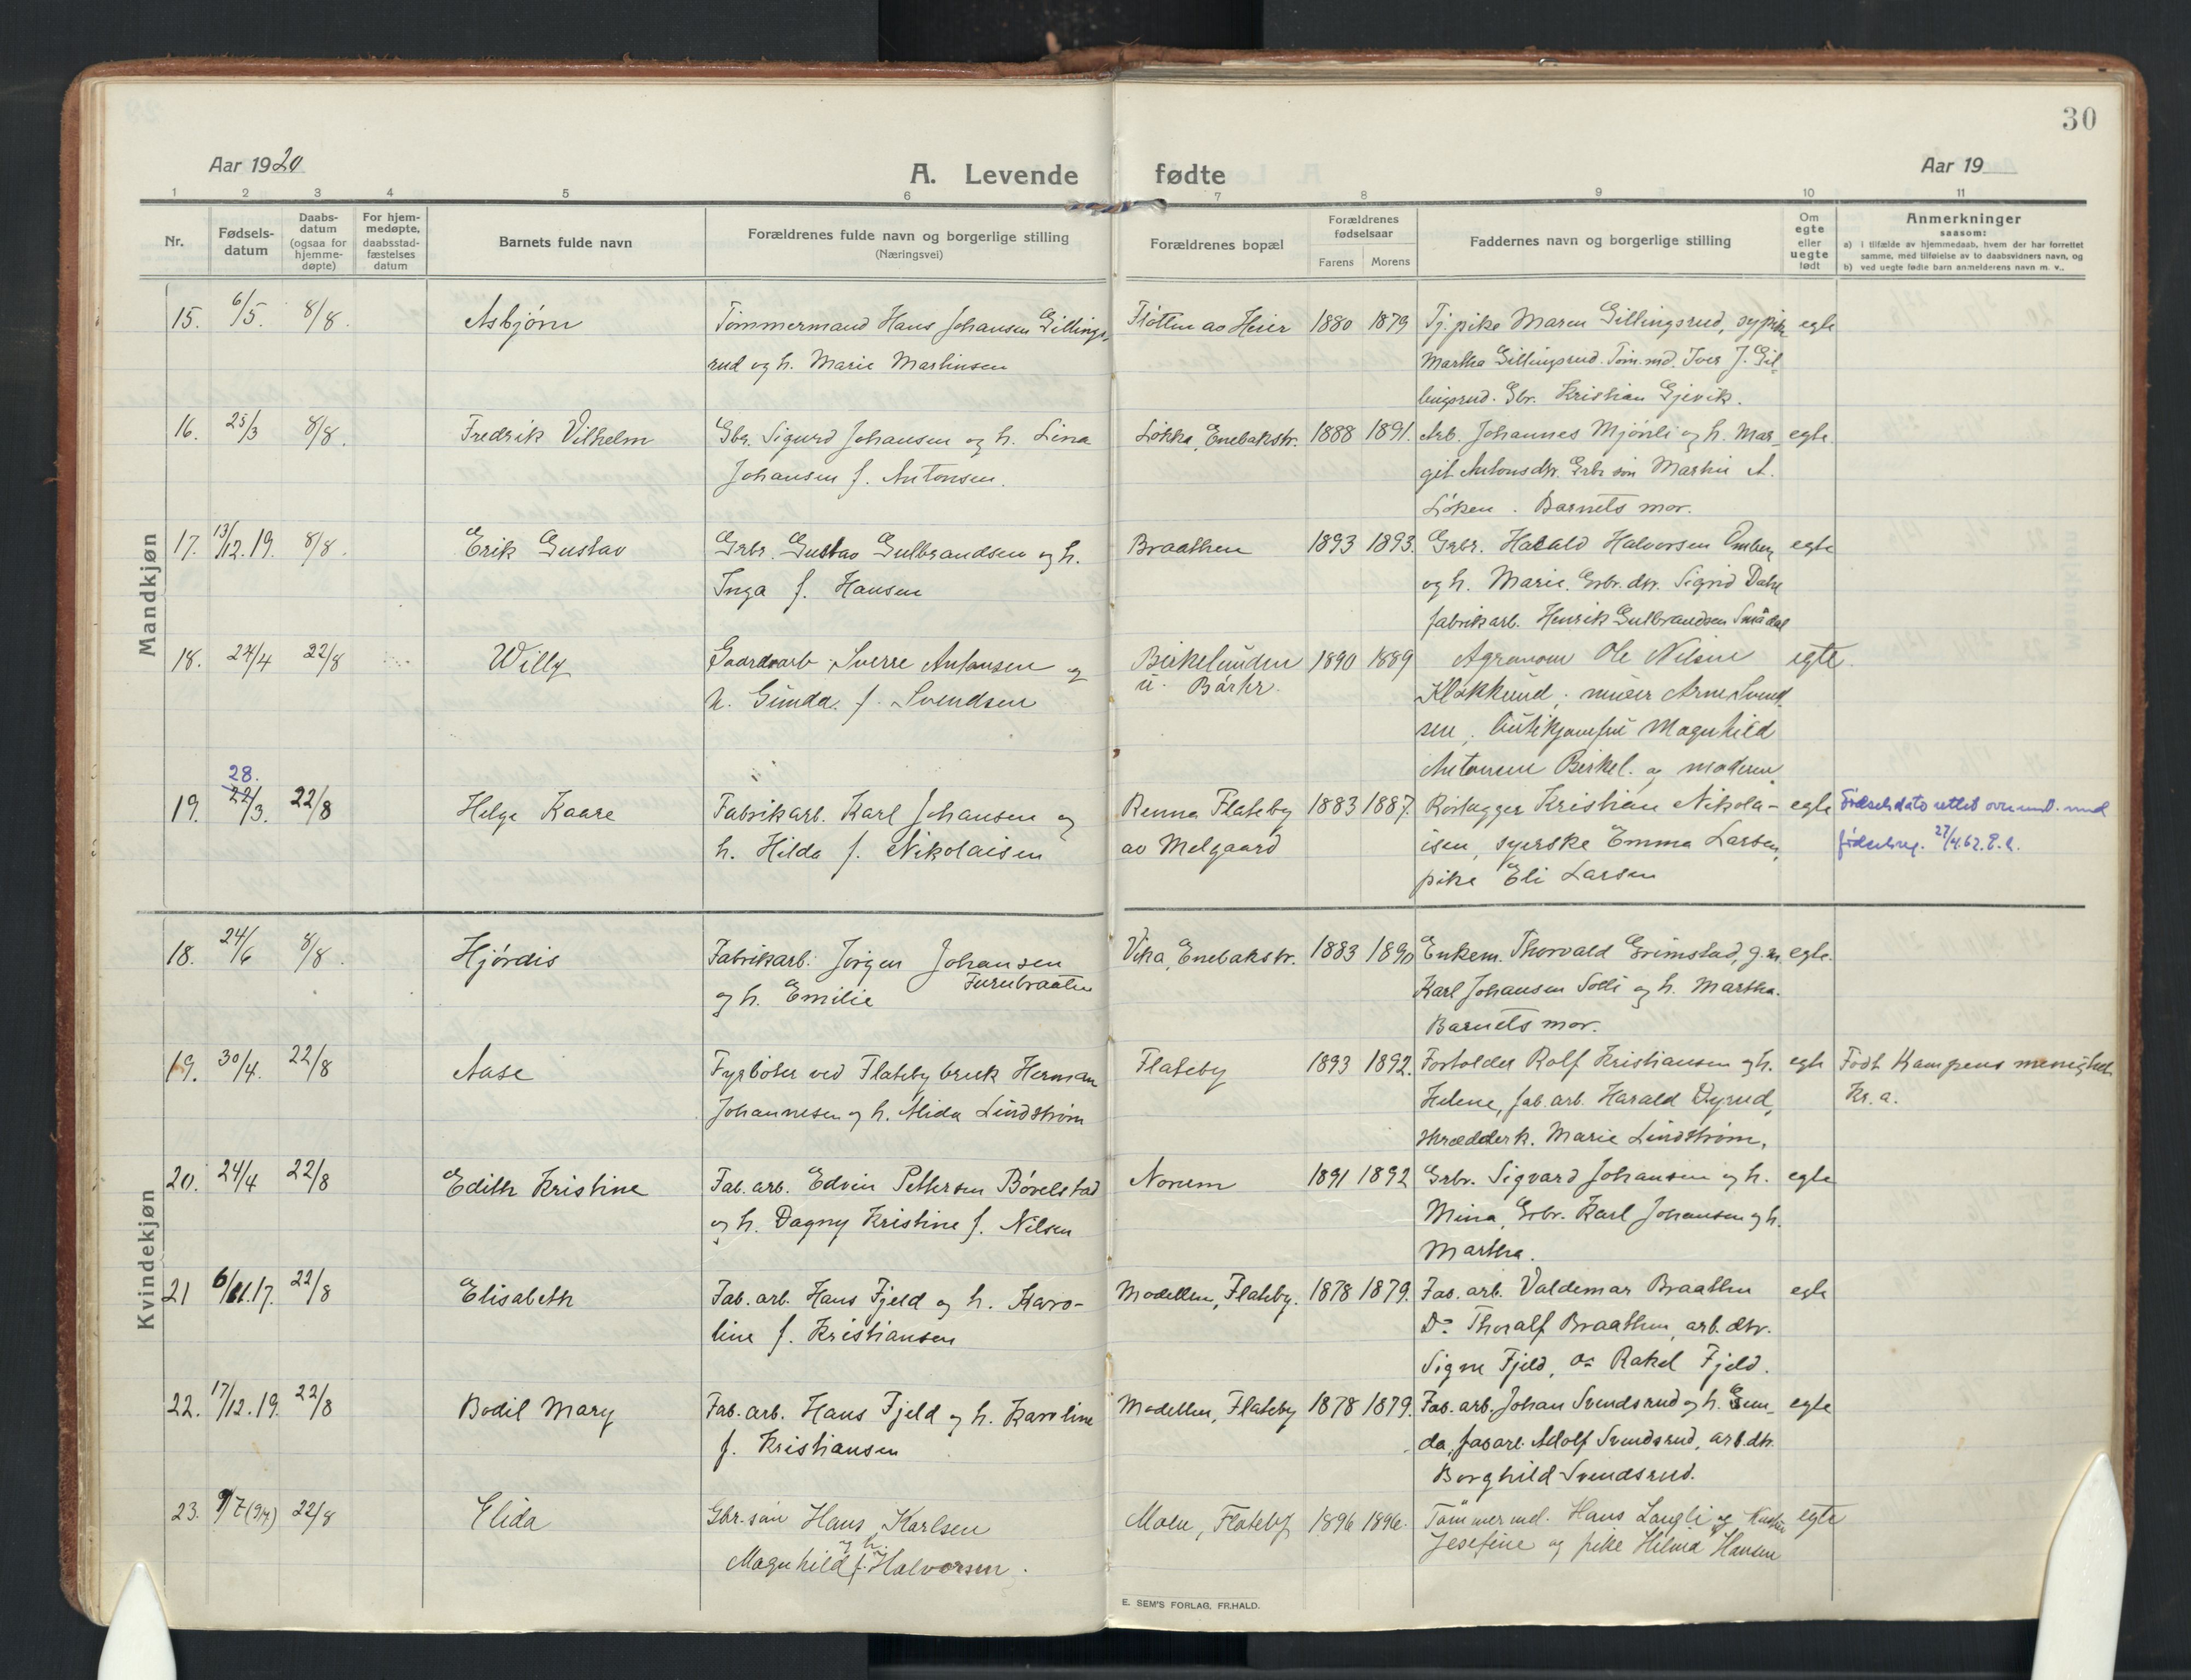 30
Aar 1920
A. Levende fødte
Aar 19
1 2 3 4 5 6 7 8 9 10 11
Nr.
Fødsels-
datum
Daabs-
datum
(ogsaa for
hjemme-
døpte)
For hjem-
medøpte,
daabsstad-
fæstelses
datum
Barnets fulde navn
Forældrenes fulde navn og borgerlige stilling
(Næringsvei)
Forældrenes bopæl
Forældrenes
fødselsaar
Farens Morens
Faddernes navn og borgerlige stilling
Om
egte
eller
uegte
født
Anmerkninger
saasom:
a) i tilfælde av hjemmedaab, hvem der har forrettet
samme, med tilføielse av to daabsvidners navn, og
b) ved uegte fødte barn anmelderens navn m. v..
Mandkjøn
15. 6/5. 8/8. Asbjørn Tømmermand Hans Johansen Gillings- Fløtten av Heier 1880 1879 Tj. pike Maren Gillingsrud, sypike egte
rud og h. Marie Martinsen Martha Gillingsrud. Tøm.md. Iver J. Gil-
lingsrud. Gbr. Kristian Gjevik.
16. 25/3 8/8. Fredrik Vilhelm Gbr. Sigurd Johansen og h. Lina Løkka, Enebakstr. 1888 1891. Arb. Johannes Mjønli og h. Mar- egte.
Johansen f. Antonsen. git Antonsdtr. Grbr søn Martin A.
Løken. Barnets mor.
17. 13/12.19. 8/8. Erik Gustav Grbr. Gustav Gulbrandsen og h. Braathen 1893 1893. Grbr. Harald Halvorsen Omberg egte
Inga f. Hansen og h. Marie. Grbr. dtr. Sigrid Dahl
fabrikarb. Henrik Gulbrandsen Smådal
18. 24/4 22/8 Willy Gaardsarb. Sverre Antonsen og Birkelunden 1890 1889 Agronom Ole Nilsen egte.
h. Gunda f. Svendsen u. Børter. Klokkerud, murer Arne Svend-
sen, butikjomfru Magnhild
Antonsen Birkel. og moderen.
28.
19. 22/3. 22/8 Helge Kaare Fabrikarb. Karl Johansen og Renna Flateby 1883 1887. Rørlægger Kristian Nikola- egte Fødselsdato rettet med
h. Hilda f. Nikolaisen av Melgaard isen, syerske Emma Larsen, fødselsreg. 27/4.62.
pike Eli Larsen
Kvindekjøn
18. 24/6 8/8. Hjørdis Fabrikarb. Jørgen Johansen Vika, Enebakstr. 1883 1890 Enkem. Thorvald Grimstad, g.m. egte.
Furubraaten
og h. Emilie Karl Johansen Solli og h. Martha.
Barnets mor.
19. 30/4. 22/8 Aase Fyrbøter ved Flateby bruk Herman Flateby 1893 1892. Forvolder Rolf Kristiansen og h. egte Født Kampens menighet
Johannesen og h. Alida Lindstrøm Helene, fab. arb. Harald Dyrud, Kr. a.
skrædderk. Marie Lindstrøm.
20. 24/4 22/8 Edith Kristine Fab. arb. Edvin Pettersen Bøvelstad Norum 1891 1892 Grbr. Sigvard Johansen og h. egte
og h. Dagny Kristine f. Nilsen Mina, Grbr. Karl Johansen og h.
Martha.
21 6/11.17. 22/8 Elisabeth Fab. arb. Hans Fjeld og h. Karo- Modellen, Flateby. 1878 1879. Fab. arb. Valdemar Braathen egte
line f. Kristiansen Do Thoralf Braathen, arb. dtr.
Signe Fjeld, do Rakel Fjeld.
22. 17/12.19. 22/8 Bodil Mary Fab. arb. Hans Fjeld og h. Karoline Modellen, Flateby 1878 1879. Fab. arb. Johan Svendsrud og h. Gun- egte
f. Kristiansen da, fab arb. Adolf Svendsrud, arb. dtr.
Borghild Svendsrud.
23. 9/7 (9/7) 22/8 Elida Gbr. søn Hans Karlsen Moen, Flateby 1896 1896. Tømmermd. Hans Langli og hustru egte
og h.
Magnhild f. Halvorsen. Josefine og pike Hilma Hansen
E. SEM'S FORLAG, FR.HALD.